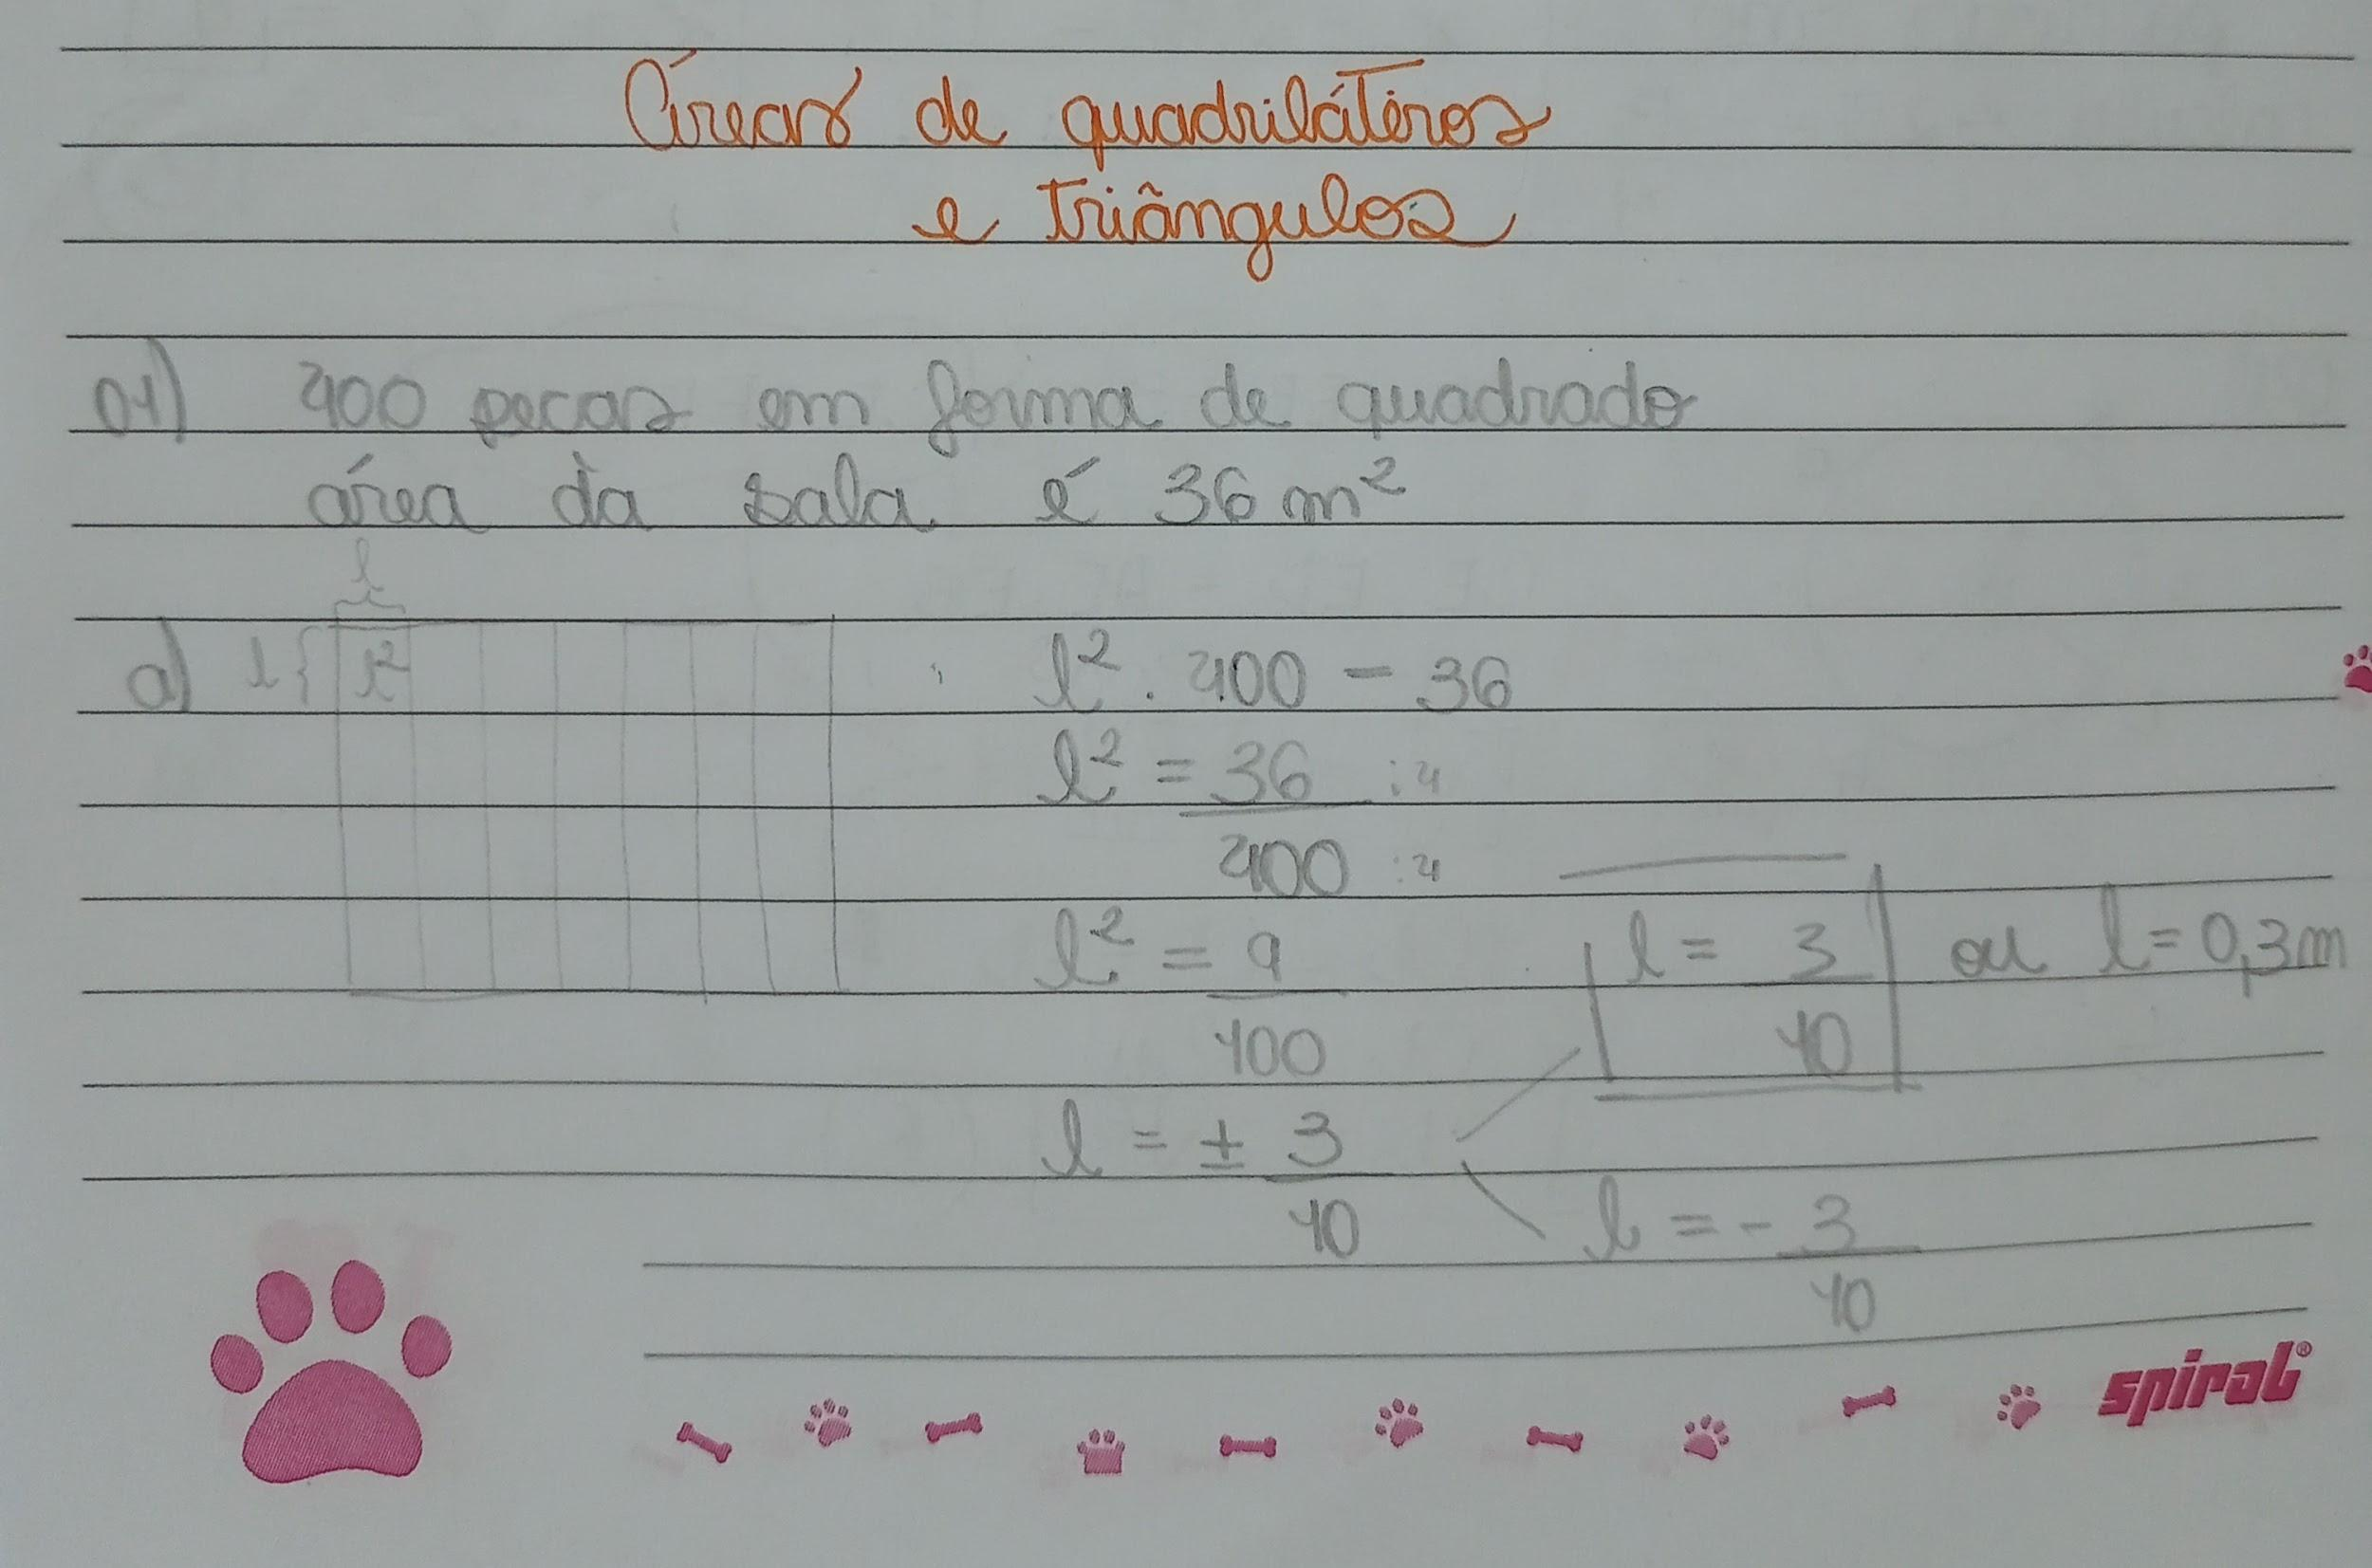 Áreas de quadriláteros
e triângulos
01) 400 peças em forma de quadrado
área da sala é 36 m²
l
a) l { l²
l² . 400 = 36
l² = 36 :4
400 :4
l² = 9
100
l = 3 ou l = 0,3m
10
l = ± 3
10
l = - 3
10
spiral®